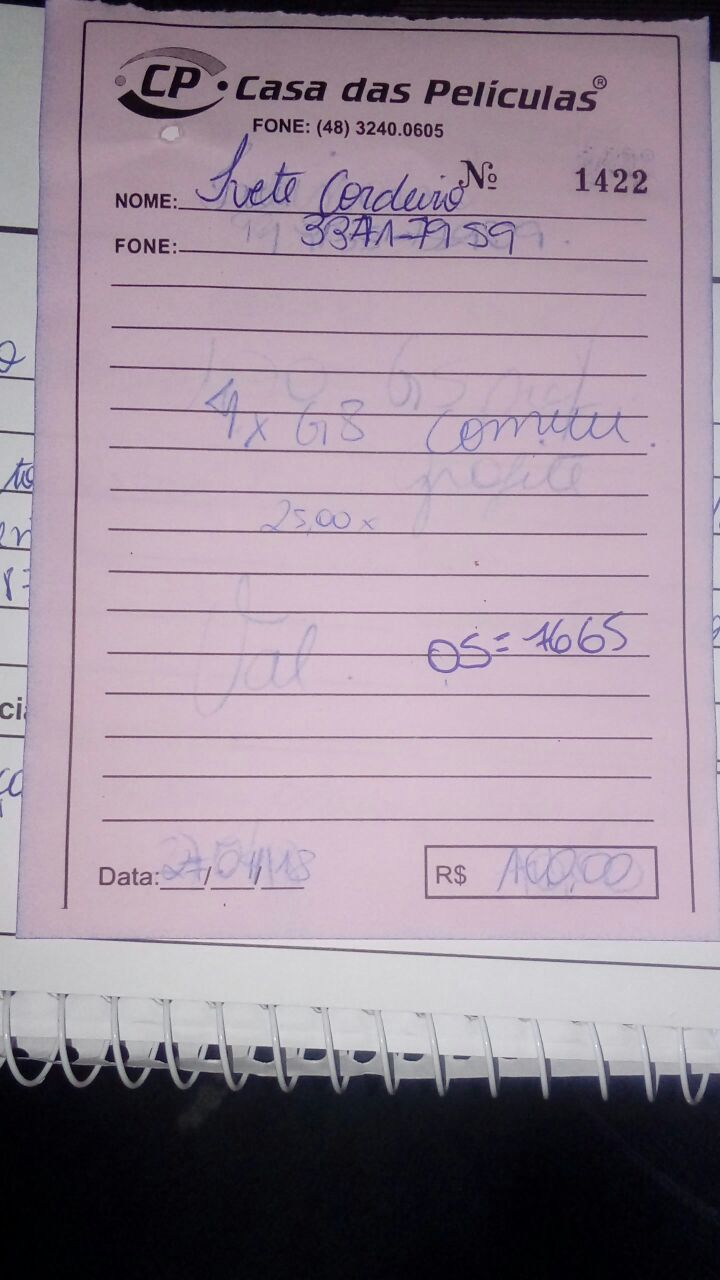 CP Casa das Películas®
FONE: (48) 3240.0605
Nº 1422
NOME: Ivete Cordeiro
FONE: 3371-7959
4x G8
25,00 x
Val.
OS = 1665
Data: 27/04/18 R$ 100,00